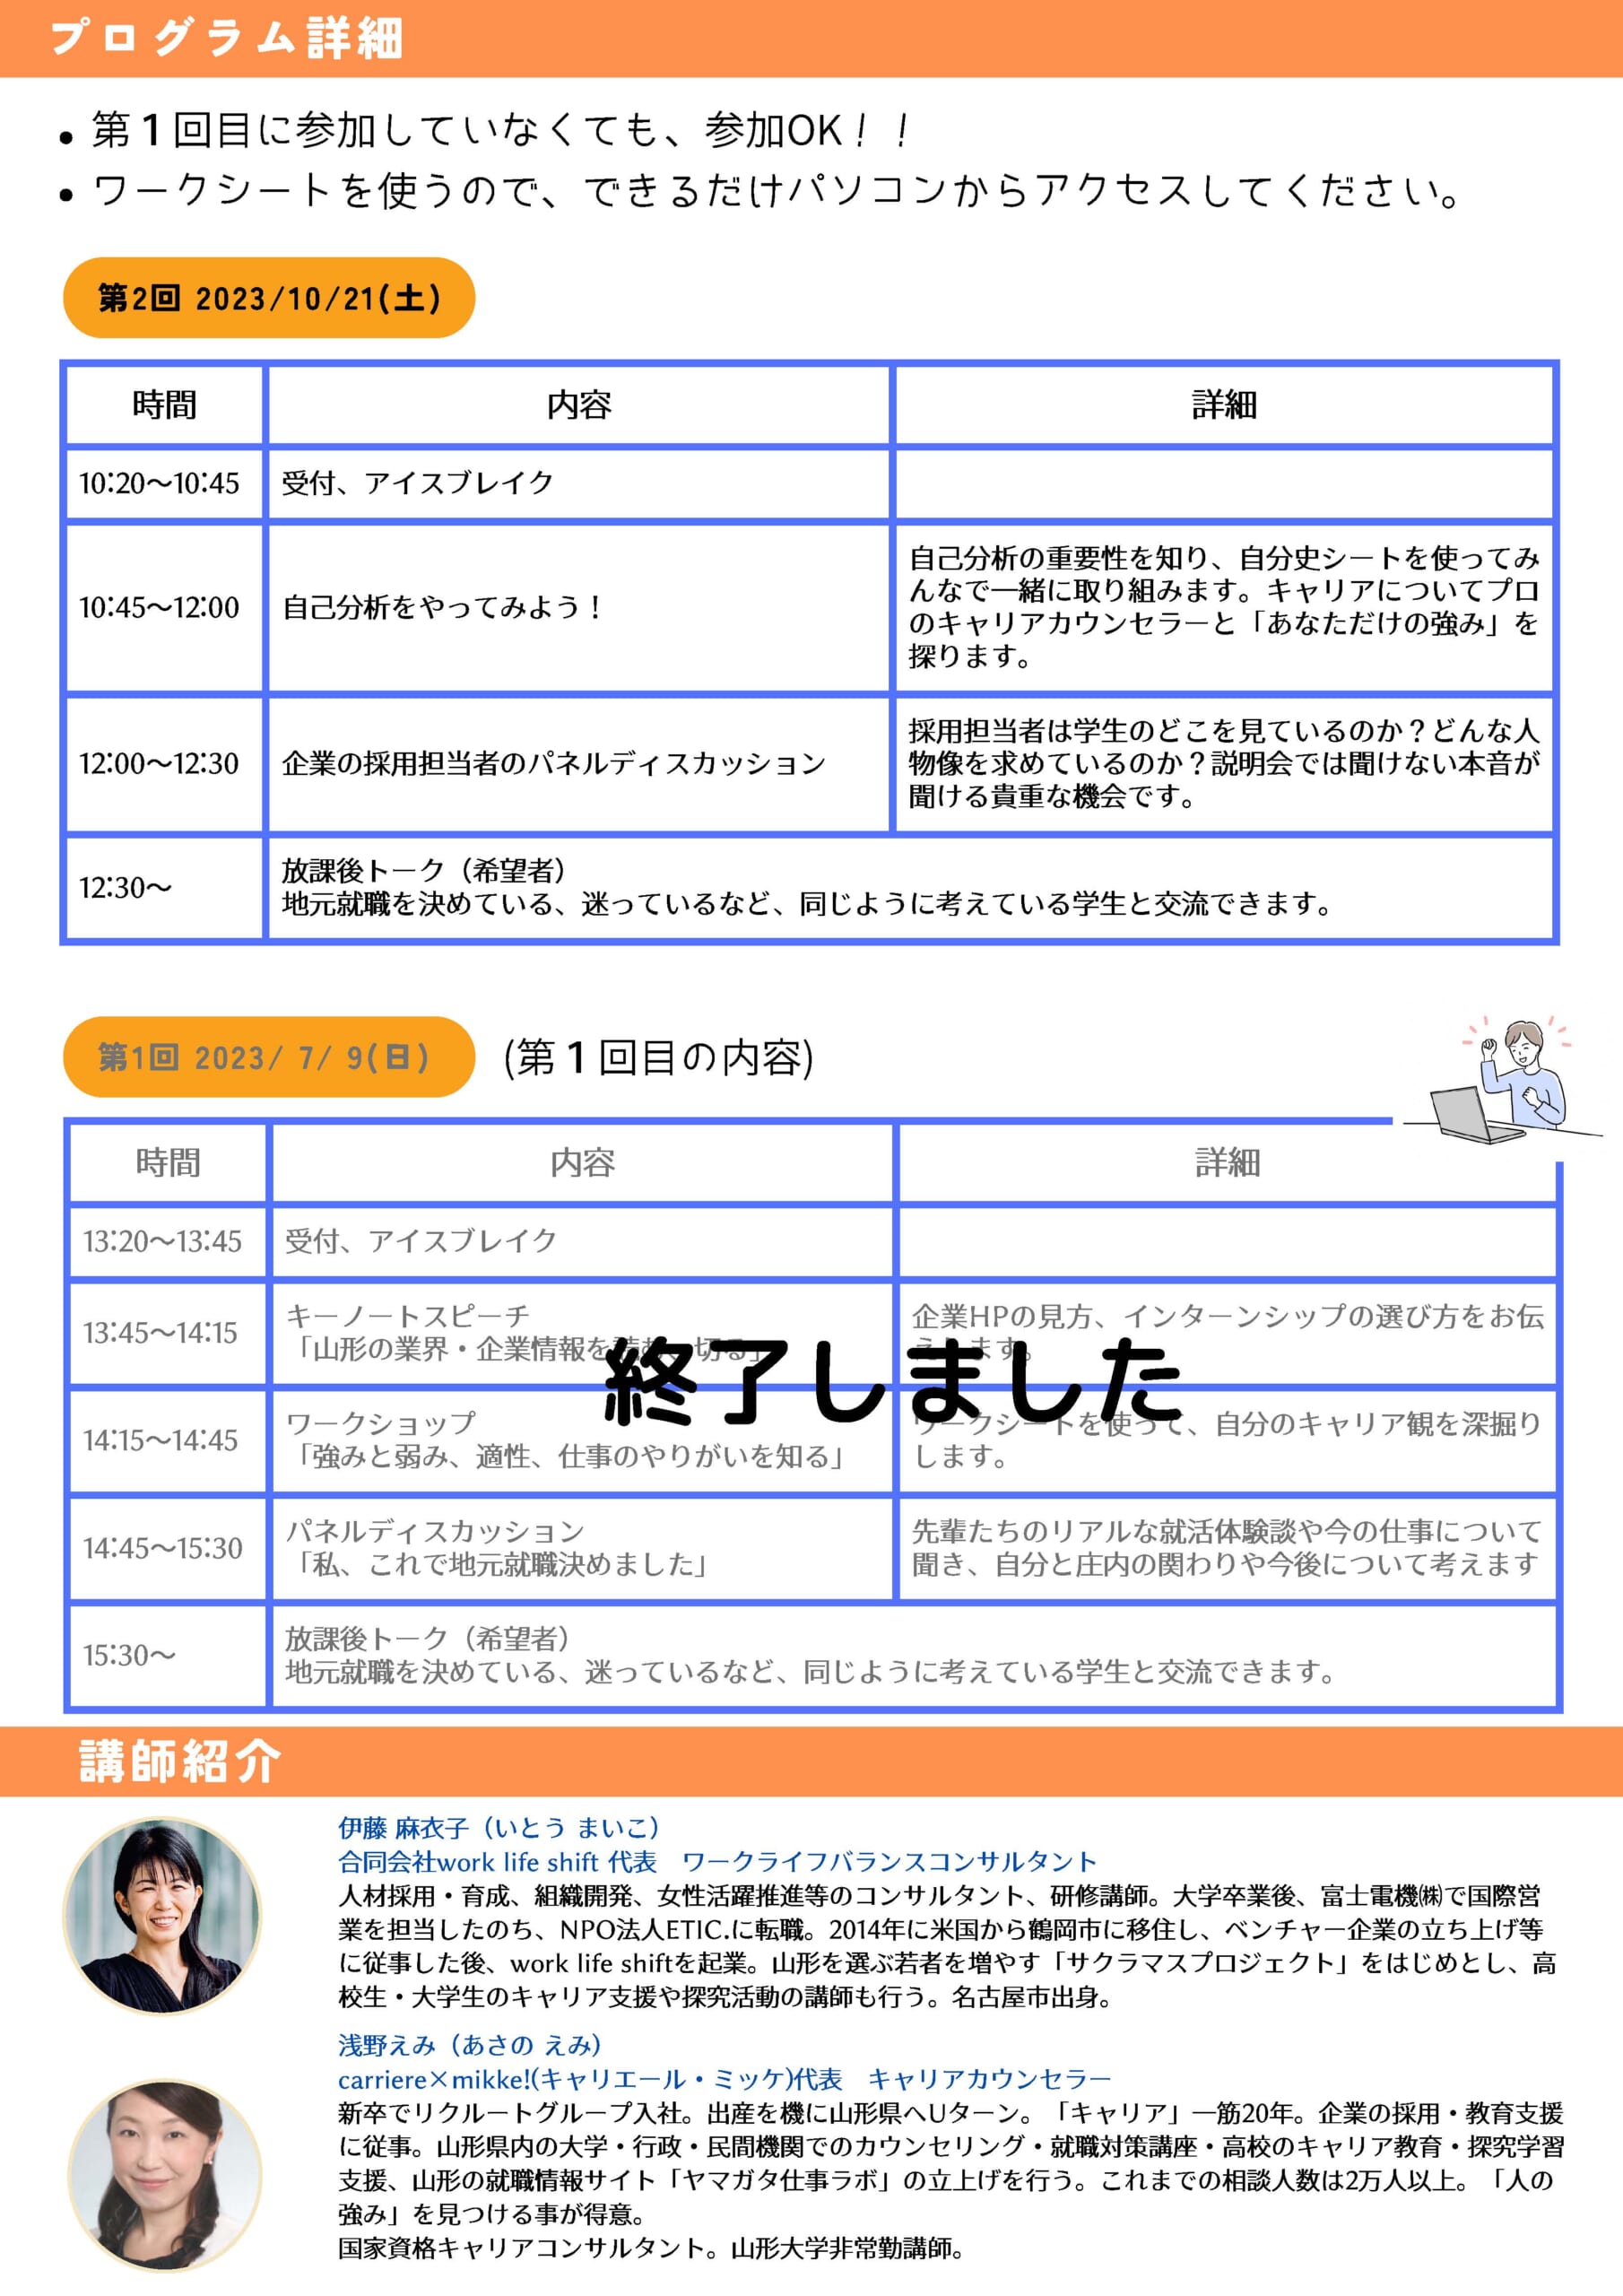 プログラム詳細
• 第1回目に参加していなくても、参加OK！！
• ワークシートを使うので、できるだけパソコンからアクセスしてください。
第2回 2023/10/21(土)
時間 内容 詳細
10:20〜10:45 受付、アイスブレイク
10:45〜12:00 自己分析をやってみよう！
自己分析の重要性を知り、自分史シートを使ってみ
んなで一緒に取り組みます。キャリアについてプロ
のキャリアカウンセラーと「あなただけの強み」を
探ります。
12:00〜12:30 企業の採用担当者のパネルディスカッション
採用担当者は学生のどこを見ているのか？どんな人
物像を求めているのか？説明会では聞けない本音が
聞ける貴重な機会です。
12:30〜
放課後トーク（希望者）
地元就職を決めている、迷っているなど、同じように考えている学生と交流できます。
第1回 2023/ 7/ 9(日)
(第1回目の内容)
時間 内容 詳細
13:20〜13:45 受付、アイスブレイク
13:45〜14:15
キーノートスピーチ
「山形の業界・企業情報を 切る」
企業HPの見方、インターンシップの選び方をお伝
えします。
終了しました
14:15〜14:45
ワークショップ
「強みと弱み、適性、仕事のやりがいを知る」
ワークシートを使って、自分のキャリア観を深掘り
します。
14:45〜15:30
パネルディスカッション
「私、これで地元就職決めました」
先輩たちのリアルな就活体験談や今の仕事について
聞き、自分と庄内の関わりや今後について考えます
15:30〜
放課後トーク（希望者）
地元就職を決めている、迷っているなど、同じように考えている学生と交流できます。
講師紹介
伊藤 麻衣子（いとう まいこ）
合同会社work life shift 代表　ワークライフバランスコンサルタント
人材採用・育成、組織開発、女性活躍推進等のコンサルタント、研修講師。大学卒業後、富士電機㈱で国際営
業を担当したのち、NPO法人ETIC.に転職。2014年に米国から鶴岡市に移住し、ベンチャー企業の立ち上げ等
に従事した後、work life shiftを起業。山形を選ぶ若者を増やす「サクラマスプロジェクト」をはじめとし、高
校生・大学生のキャリア支援や探究活動の講師も行う。名古屋市出身。
浅野えみ（あさの えみ）
carriere×mikke!(キャリエール・ミッケ)代表　キャリアカウンセラー
新卒でリクルートグループ入社。出産を機に山形県へUターン。「キャリア」一筋20年。企業の採用・教育支援
に従事。山形県内の大学・行政・民間機関でのカウンセリング・就職対策講座・高校のキャリア教育・探究学習
支援、山形の就職情報サイト「ヤマガタ仕事ラボ」の立上げを行う。これまでの相談人数は2万人以上。「人の
強み」を見つける事が得意。
国家資格キャリアコンサルタント。山形大学非常勤講師。